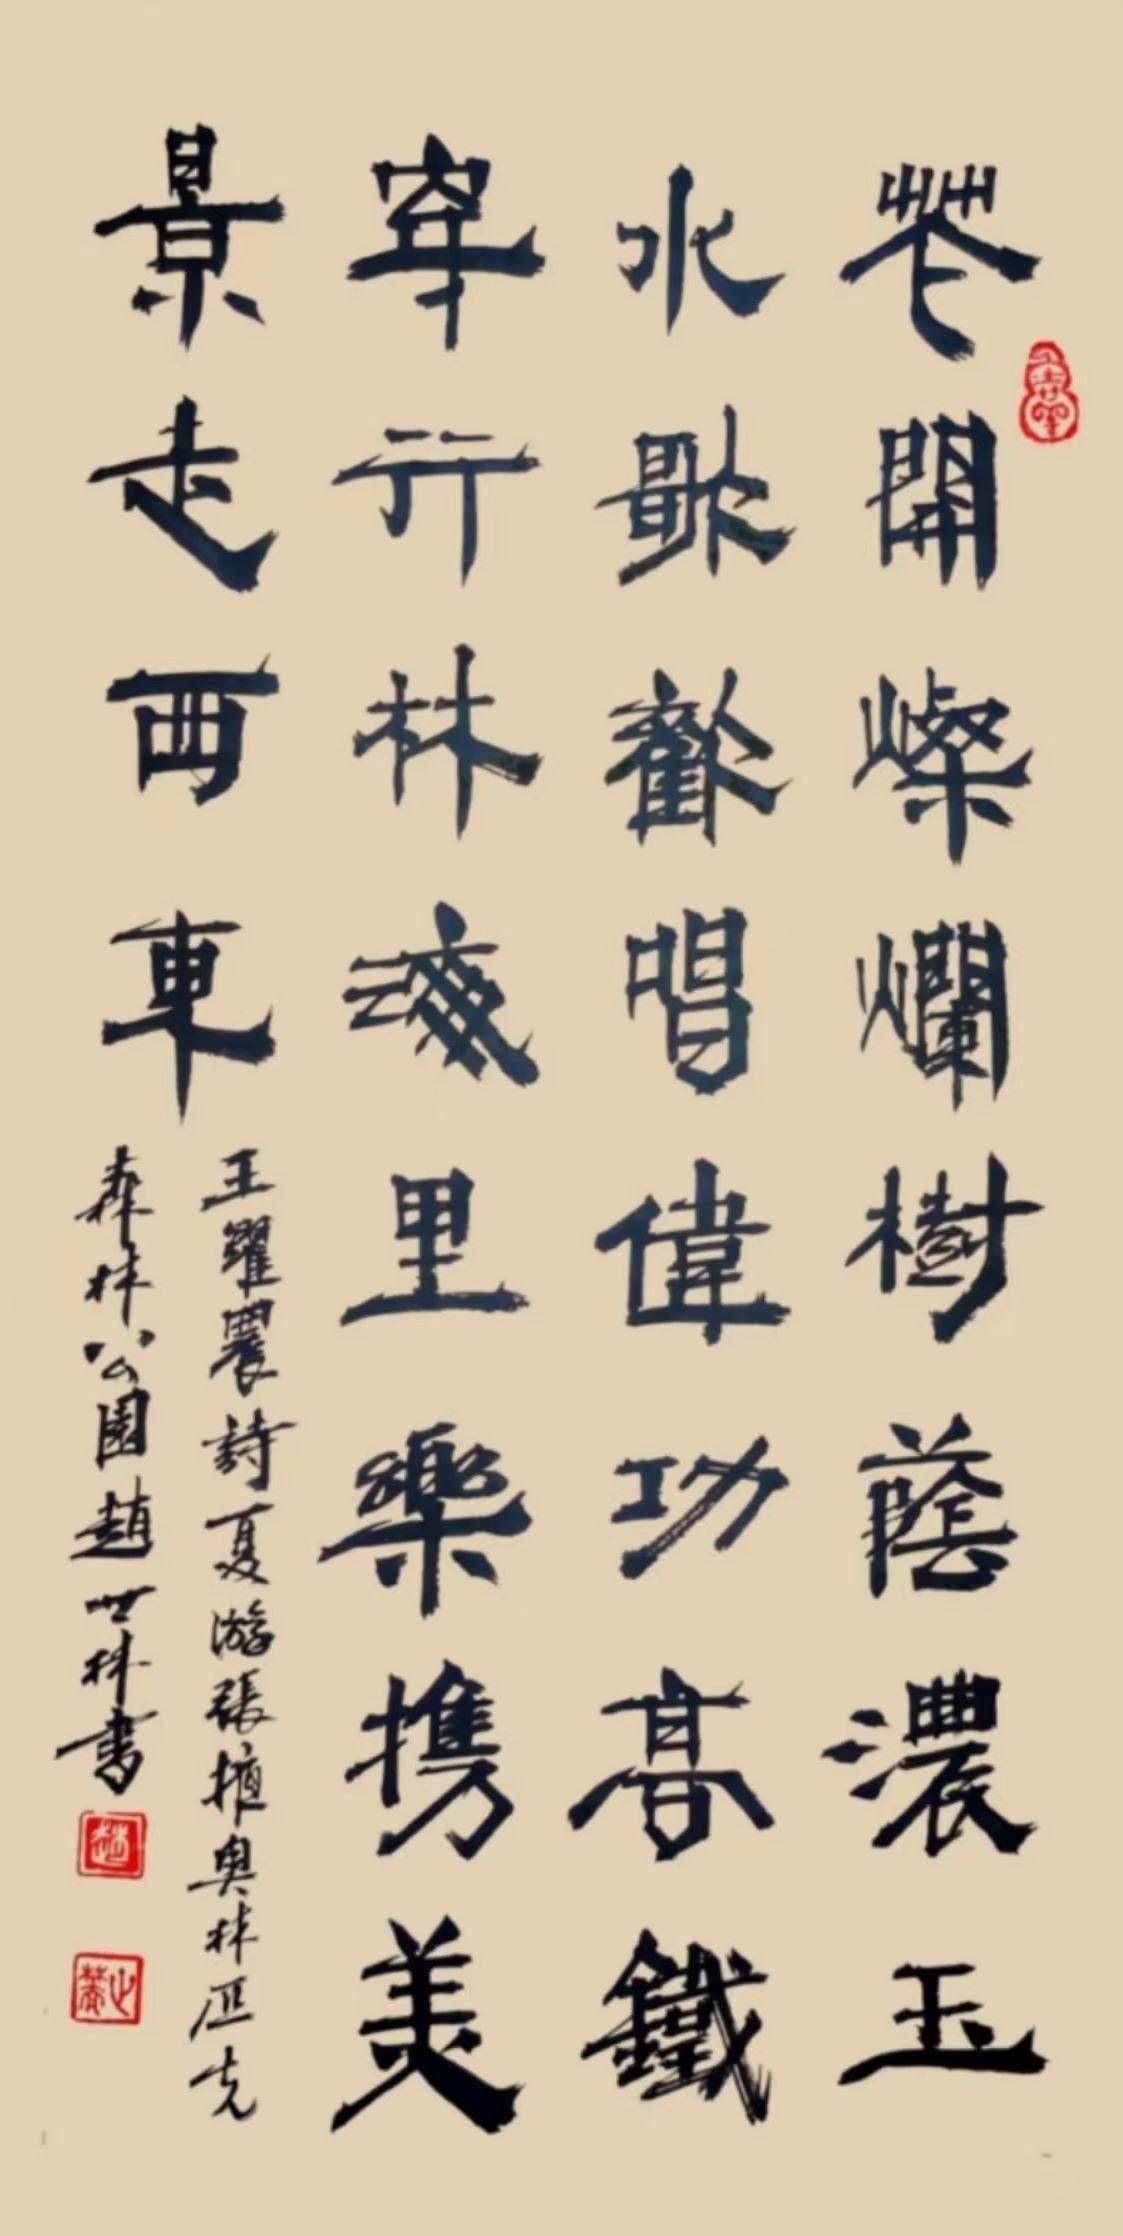 花開燦爛樹蔭濃玉
水歌歡唱偉功高鐵
穿行林海里樂携美
景走西東
王躍農詩夏游張掖奥林匹克
森林公園趙世林書